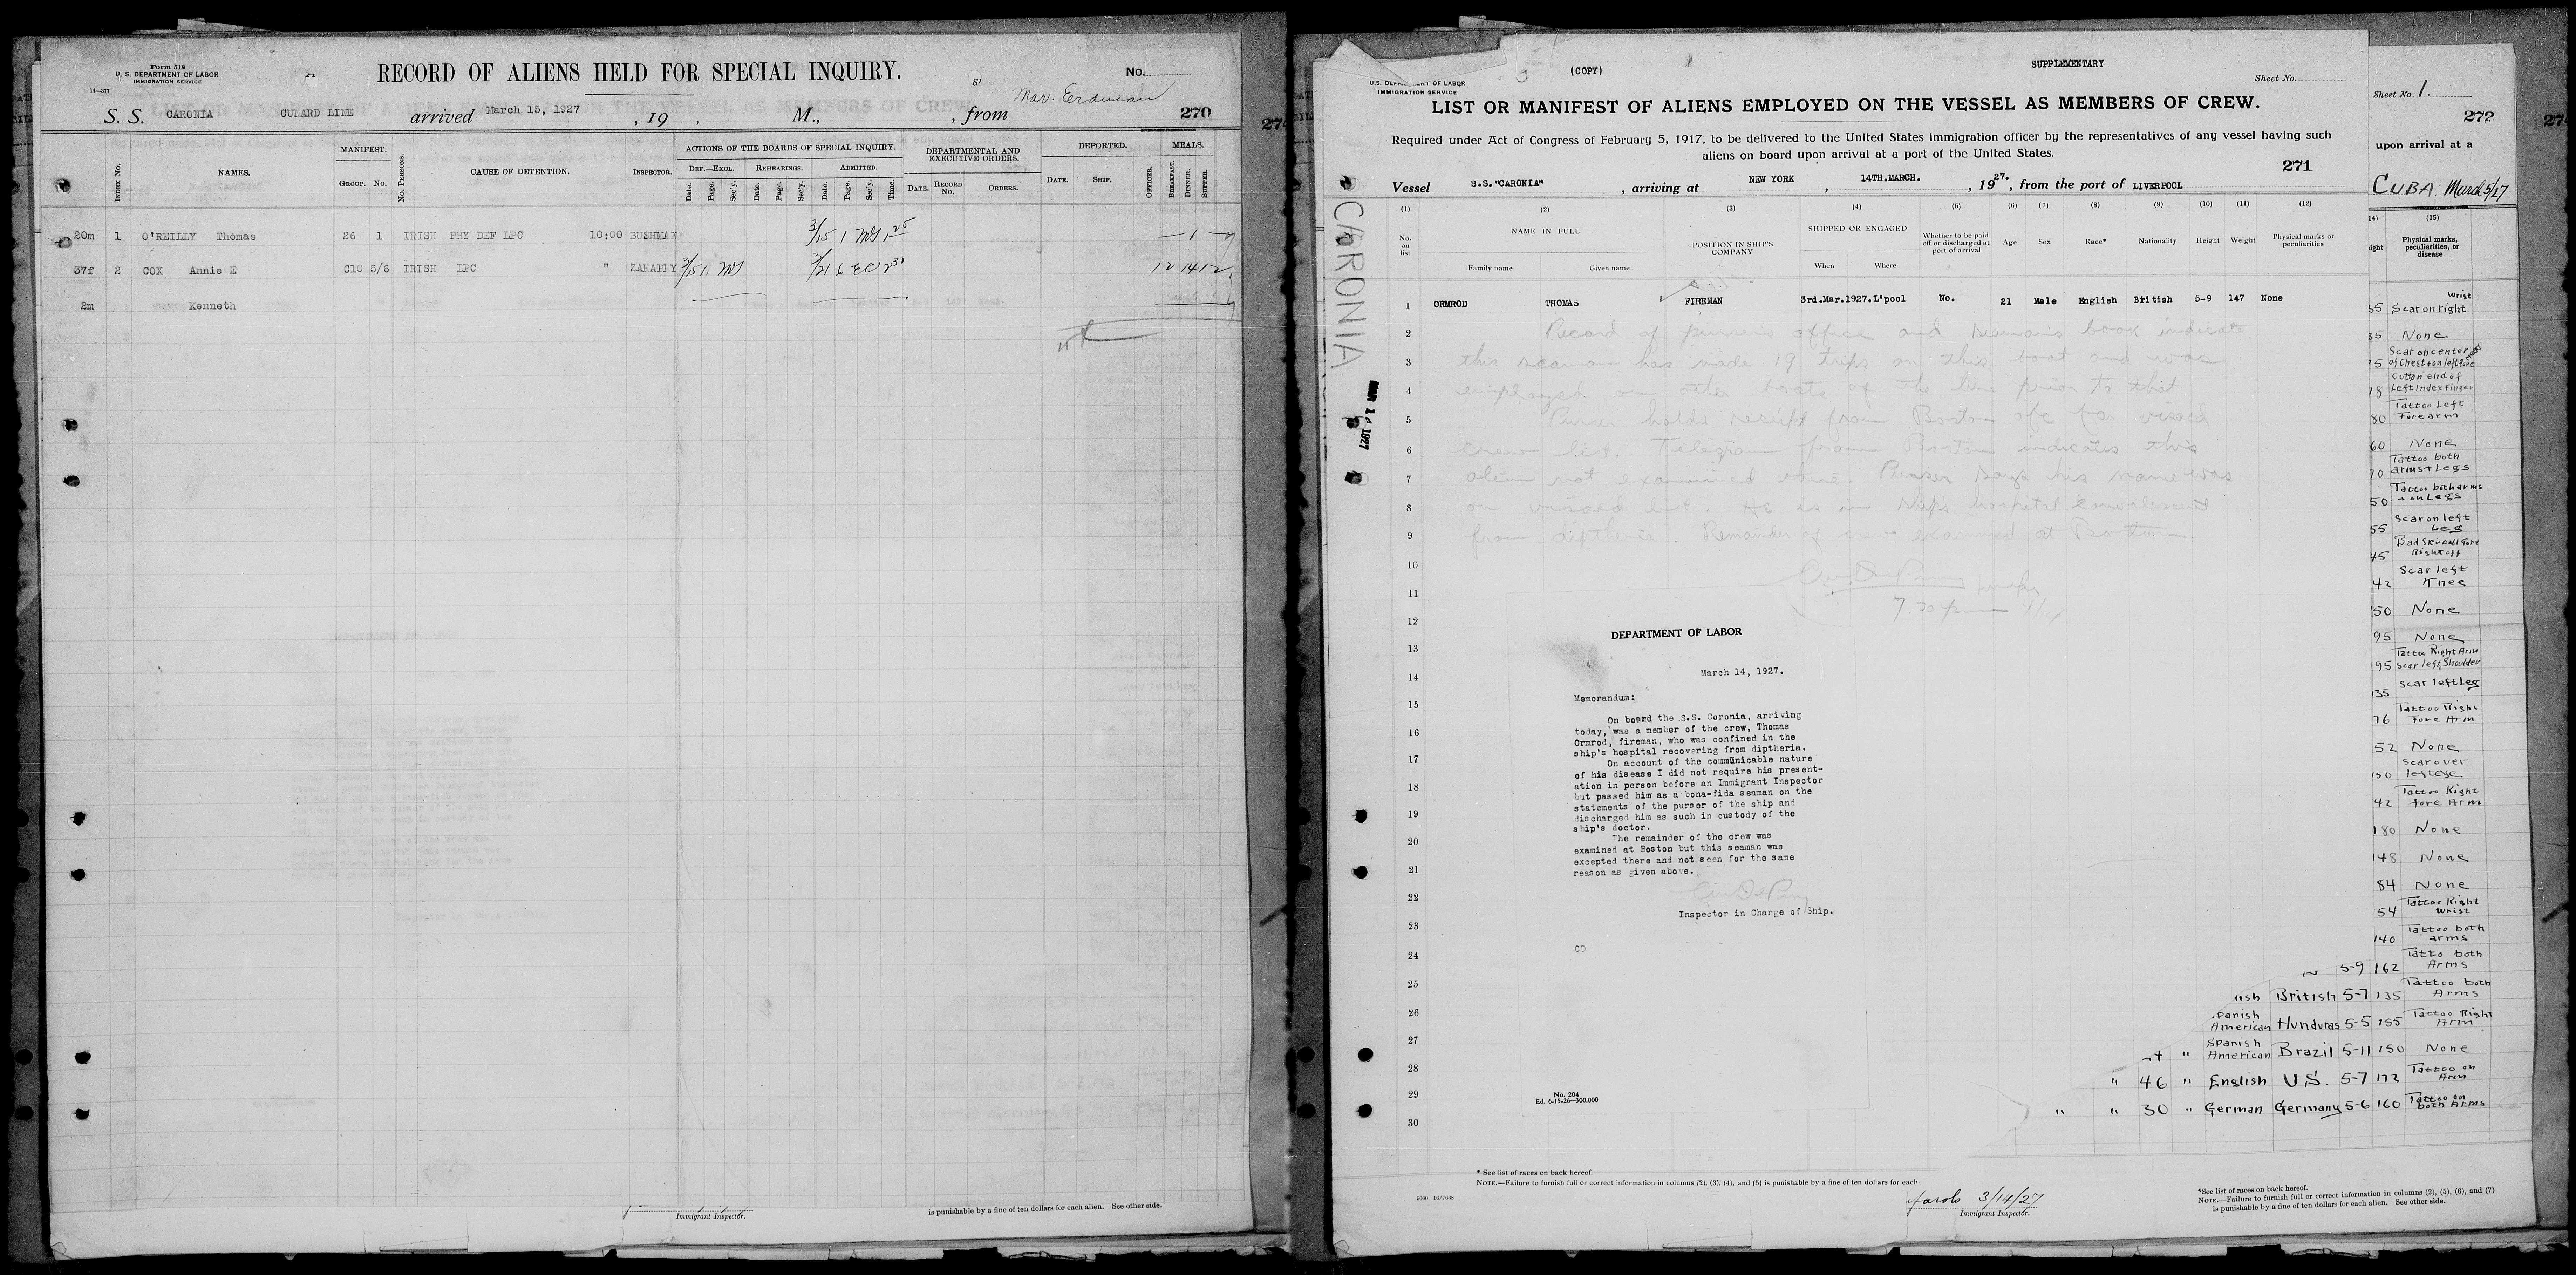 Form 518
U. S. DEPARTMENT OF LABOR
IMMIGRATION SERVICE
14—377
RECORD OF ALIENS HELD FOR SPECIAL INQUIRY.
No.
S. S. CARONIA CUNARD LINE arrived March 15, 1927, 19 , M., , from 270
Index No. NAMES. MANIFEST. GROUP. No. No. PERSONS. CAUSE OF DETENTION. INSPECTOR. ACTIONS OF THE BOARDS OF SPECIAL INQUIRY. DEPARTMENTAL AND EXECUTIVE ORDERS. DEPORTED. MEALS.
DEF.—EXCL. REHEARINGS. ADMITTED. DATE. RECORD No. ORDERS. DATE. SHIP. OFFICER. BREAKFAST. DINNER. SUPPER.
Date. Page. Sec'y. Date. Page. Sec'y. Date. Page. Sec'y. Time.
20m 1 O'REILLY Thomas 26 1 IRISH PHY DEF LPC 10:00 BUSHMAN 3/15 1
37f 2 COX Annie E C10 5/6 IRISH LPC "
2m Kenneth
Immigrant Inspector.
is punishable by a fine of ten dollars for each alien. See other side.
(COPY)
SUPPLEMENTARY
Sheet No.
U.S. DEPARTMENT OF LABOR
IMMIGRATION SERVICE
LIST OR MANIFEST OF ALIENS EMPLOYED ON THE VESSEL AS MEMBERS OF CREW.
Required under Act of Congress of February 5, 1917, to be delivered to the United States immigration officer by the representatives of any vessel having such
aliens on board upon arrival at a port of the United States.
271
Vessel S.S."CARONIA" , arriving at NEW YORK , 14TH.MARCH. , 1927., from the port of LIVERPOOL
(1) (2) (3) (4) (5) (6) (7) (8) (9) (10) (11) (12)
No. on list NAME IN FULL POSITION IN SHIP'S COMPANY SHIPPED OR ENGAGED Whether to be paid off or discharged at port of arrival Age Sex Race* Nationality Height Weight Physical marks or peculiarities
Family name Given name When Where
CARONIA
1 ORMROD THOMAS FIREMAN 3rd.Mar.1927.L'pool No. 21 Male English British 5-9 147 None
2 Record of purser's office and seaman's book indicate
3 this seaman has made 19 trips on this boat and was
4 employed on other boats of the line prior to that
5 Purser holds receipt from Boston ofc for visaed
6 crew list. Telegram from Boston indicates this
7 alien not examined there. Purser says his name was
8 on visaed list. He is in ship's hospital convalescent
9 from diptheria. Remainder of crew examined at Boston
10
11 7.30 pm
12
13
14
15
16
17
18
19
20
21
22
23
24
25
26
27
28
29
30
DEPARTMENT OF LABOR
March 14, 1927.
Memorandum:
On board the S.S. Coronia, arriving
today, was a member of the crew, Thomas
Ormrod, fireman, who was confined in the
ship's hospital recovering from diptheria.
On account of the communicable nature
of his disease I did not require his present-
ation in person before an Immigrant Inspector
but passed him as a bona-fida seaman on the
statements of the purser of the ship and
discharged him as such in custody of the
ship's doctor.
The remainder of the crew was
examined at Boston but this seaman was
excepted there and not seen for the same
reason as given above.
Inspector in Charge of Ship.
CD
No. 204
Ed. 6-15-26—300,000
* See list of races on back hereof.
NOTE.—Failure to furnish full or correct information in columns (2), (3), (4), and (5) is punishable by a fine of ten dollars for each
3/14/27
Immigrant Inspector.
Sheet No. 1.
272
upon arrival at a
CUBA March 5/27
(15)
Physical marks, peculiarities, or disease
35 Scar on right wrist
35 None
75 Scar on center of chest + on left fore
78 Cut on end of Left Index Finger
80 Tattoo Left Forearm
60 None
70 Tattoo both arms + Legs
50 Tattoo both arms + on Legs
55 Scar on left Leg
45
42 Scar left Knee
50 None
95 None
95 Tattoo Right Arm Scar left Shoulder
35 Scar left Leg
76 Tattoo Right Fore Arm
52 None
50 Scar over left eye
42 Tattoo Right fore Arm
180 None
48 None
84 None
54 Tattoo Right Wrist
140 Tattoo both arms
5-9 162 Tatto both Arms
British 5-7 135 Tattoo both Arms
Spanish American Hunduras 5-5 155 Tattoo Right Arm
" Spanish American Brazil 5-11 150 None
" 46 " English U.S. 5-7 172 Tattoo on Arm
" " 30 " German Germany 5-6 160 Tattoo on both Arms
*See list of races on back hereof.
NOTE.—Failure to furnish full or correct information in columns (2), (5), (6), and (7)
is punishable by a fine of ten dollars for each alien. See other side.